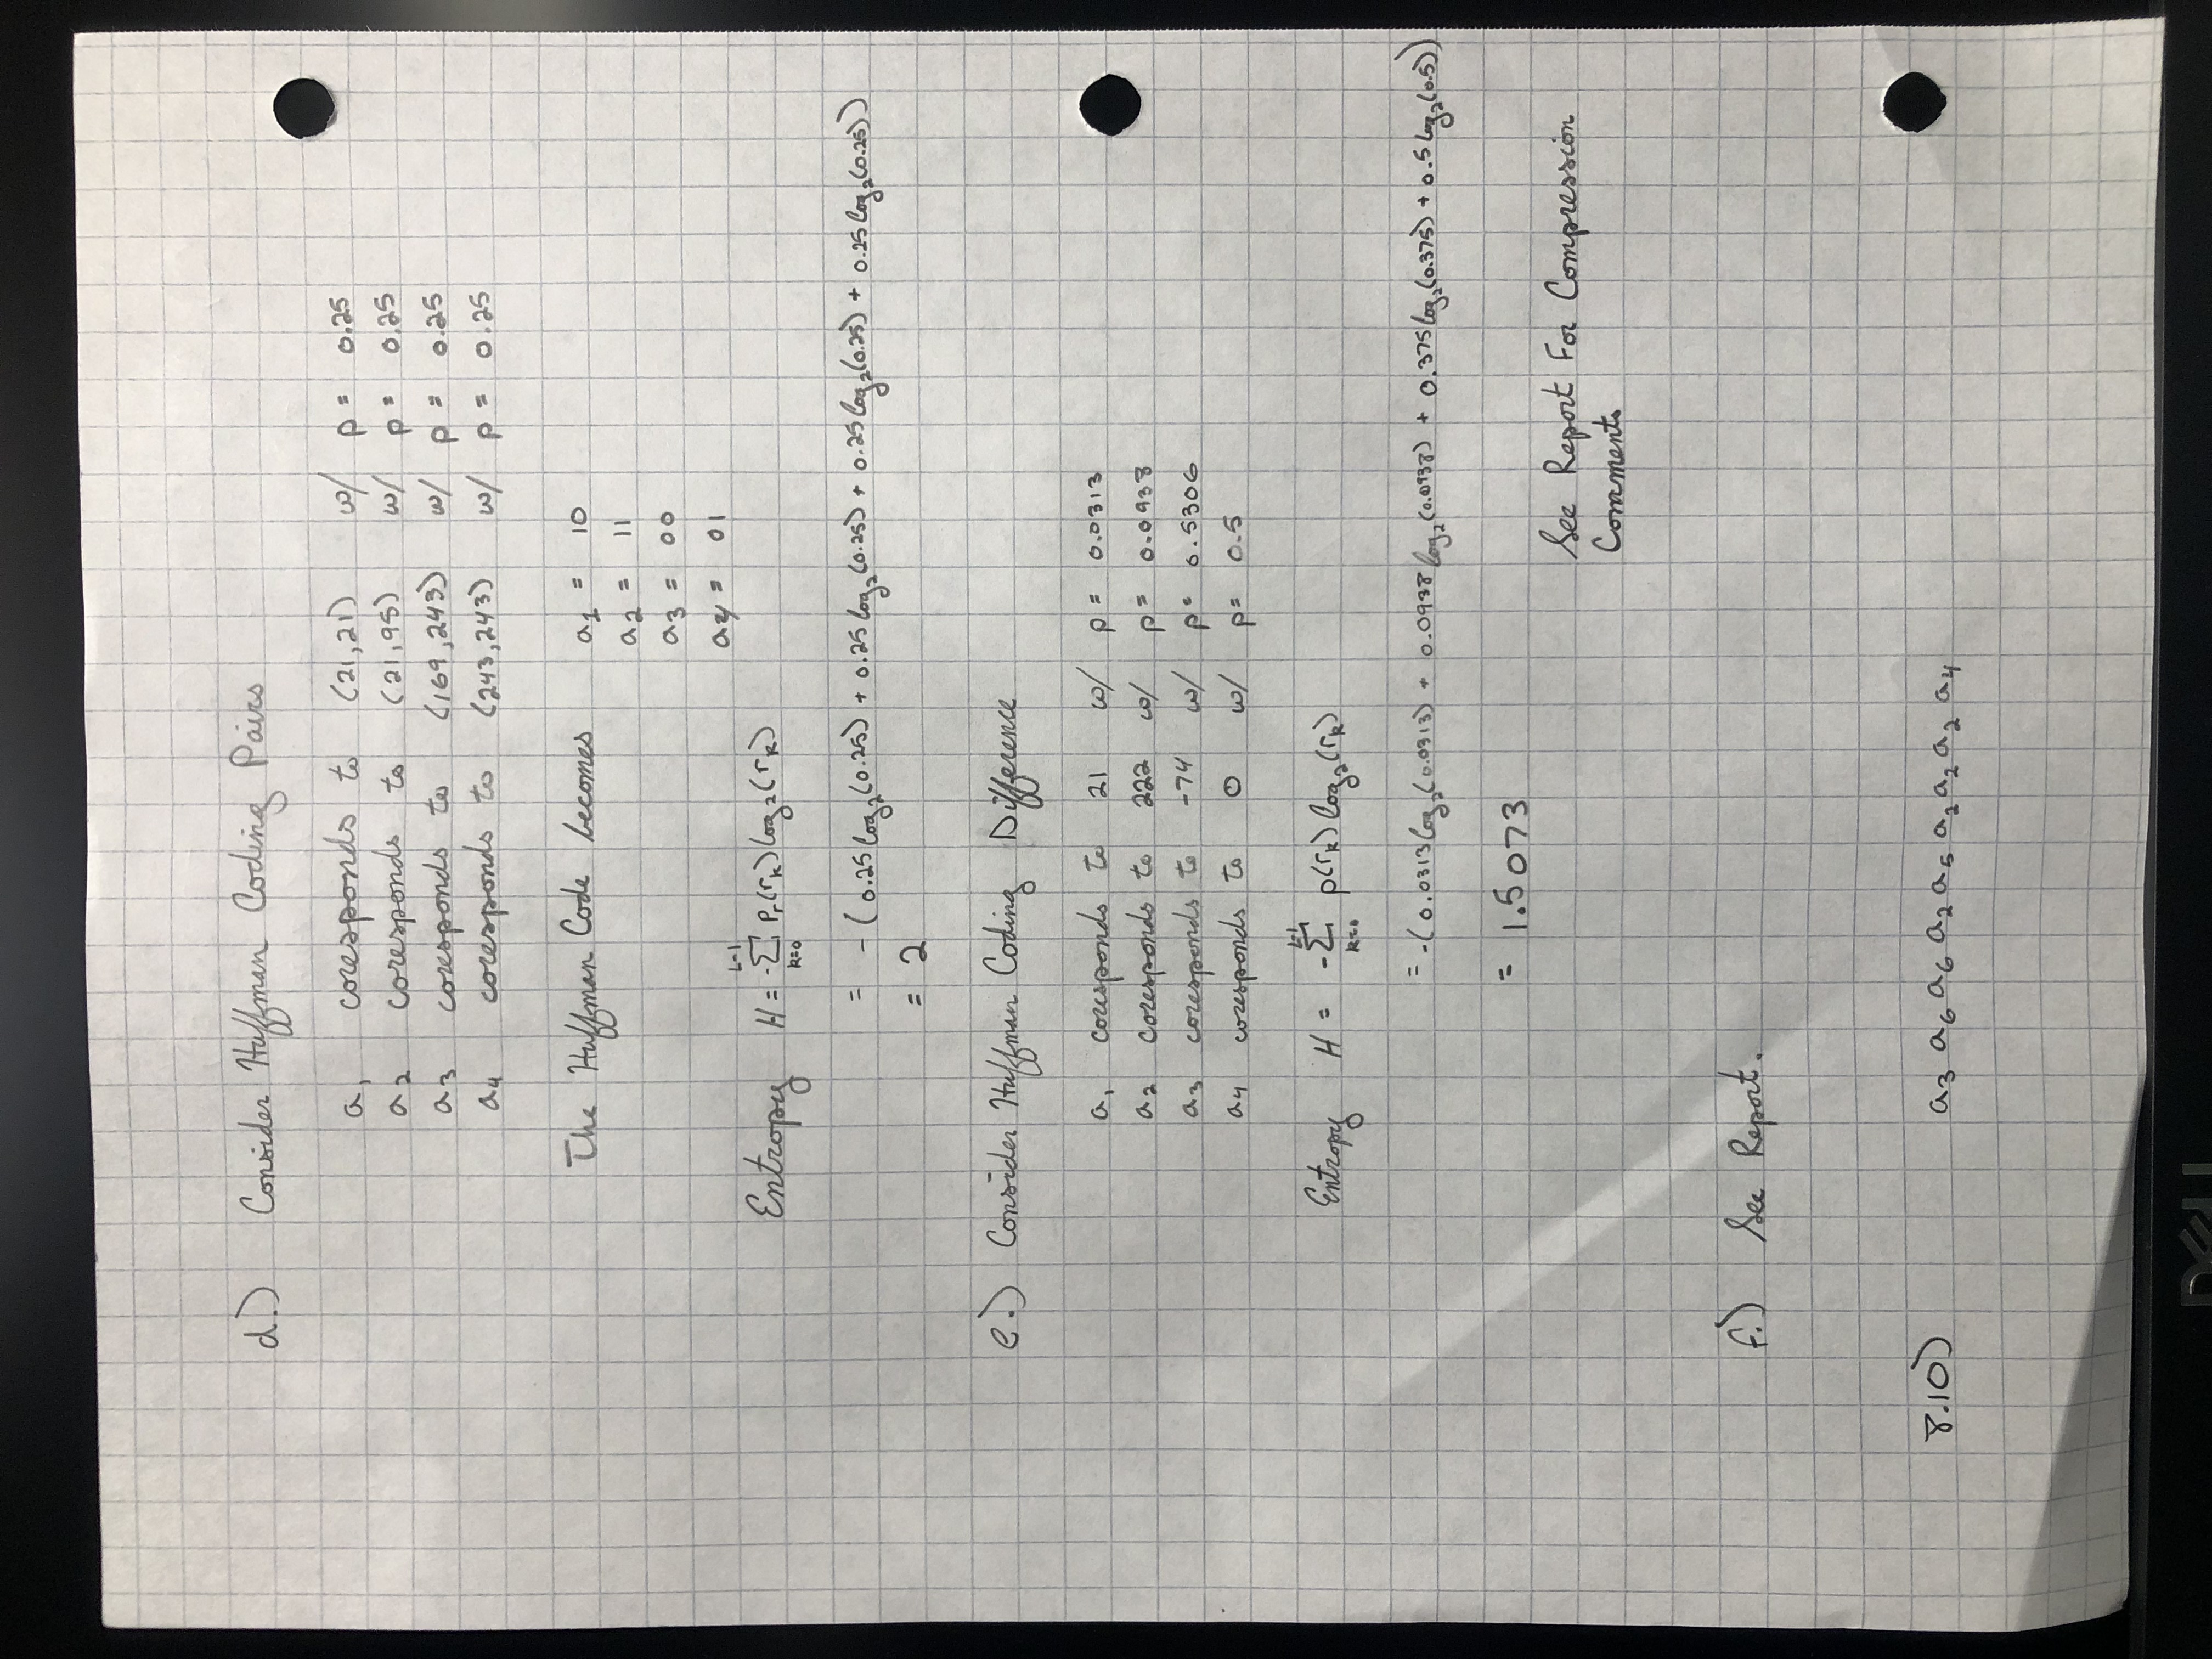 d.) Consider Huffman Coding Pairs
a1 coresponds to (21,21) w/ p = 0.25
a2 coresponds to (21,95) w/ p = 0.25
a3 coresponds to (169,243) w/ p = 0.25
a4 coresponds to (243,243) w/ p = 0.25
The Huffman Code becomes a1 = 10
a2 = 11
a3 = 00
a4 = 01
Entropy H = -∑_{k=0}^{L-1} Pr(rk) log2(rk)
= -(0.25 log2(0.25) + 0.25 log2(0.25) + 0.25 log2(0.25) + 0.25 log2(0.25))
= 2
e.) Consider Huffman Coding Difference
a1 coresponds to 21 w/ p = 0.0313
a2 coresponds to 222 w/ p = 0.0938
a3 coresponds to -74 w/ p = 0.5306
a4 coresponds to 0 w/ p = 0.5
Entropy H = -∑_{k=0}^{L-1} p(rk) log2(rk)
= -(0.0313 log2(0.0313) + 0.0938 log2(0.0938) + 0.375 log2(0.375) + 0.5 log2(0.5))
= 1.5073
See Report For Compression
Comments
f.) See Report.
8.10) a3 a6 a6 a2 a5 a2 a2 a2 a4
DELL